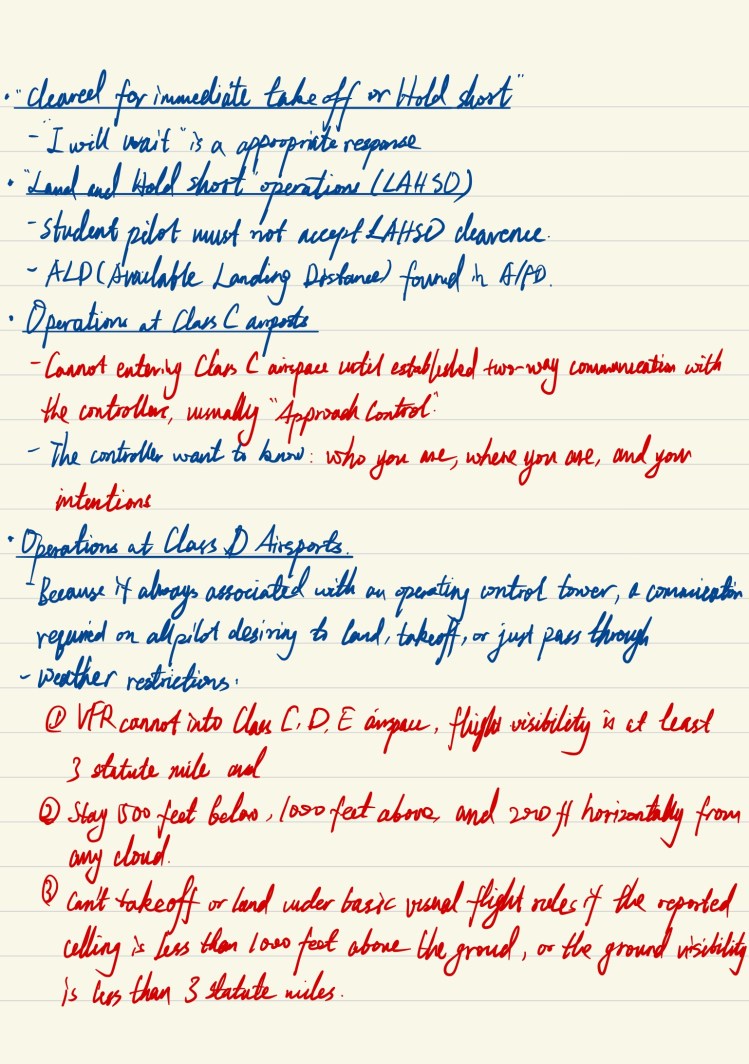 · "Cleared for immediate take off or Hold short"
- "I will wait" is a appropriate response
· "Land and Hold short" operations (LAHSO)
- Student pilot must not accept LAHSO clearence.
- ALD (Available Landing Distance) found in A/FD.
· Operations at Class C airports
- Cannot entering Class C airspace until established two-way communication with
the controllers, usually "Approach Control".
- The controller want to know: who you are, where you are, and your
intentions
· Operations at Class D Airports.
- Because it always associated with an operating control tower, a communication
required on all pilot desiring to land, takeoff, or just pass through
- Weather restrictions:
① VFR cannot into Class C, D, E airspace, flight visibility is at least
3 statute mile and
② Stay 500 feet below, 1000 feet above, and 2000 ft horizontally from
any cloud.
③ Can't takeoff or land under basic visual flight rules if the reported
celling is less than 1000 feet above the groud, or the ground visibility
is less than 3 statute miles.